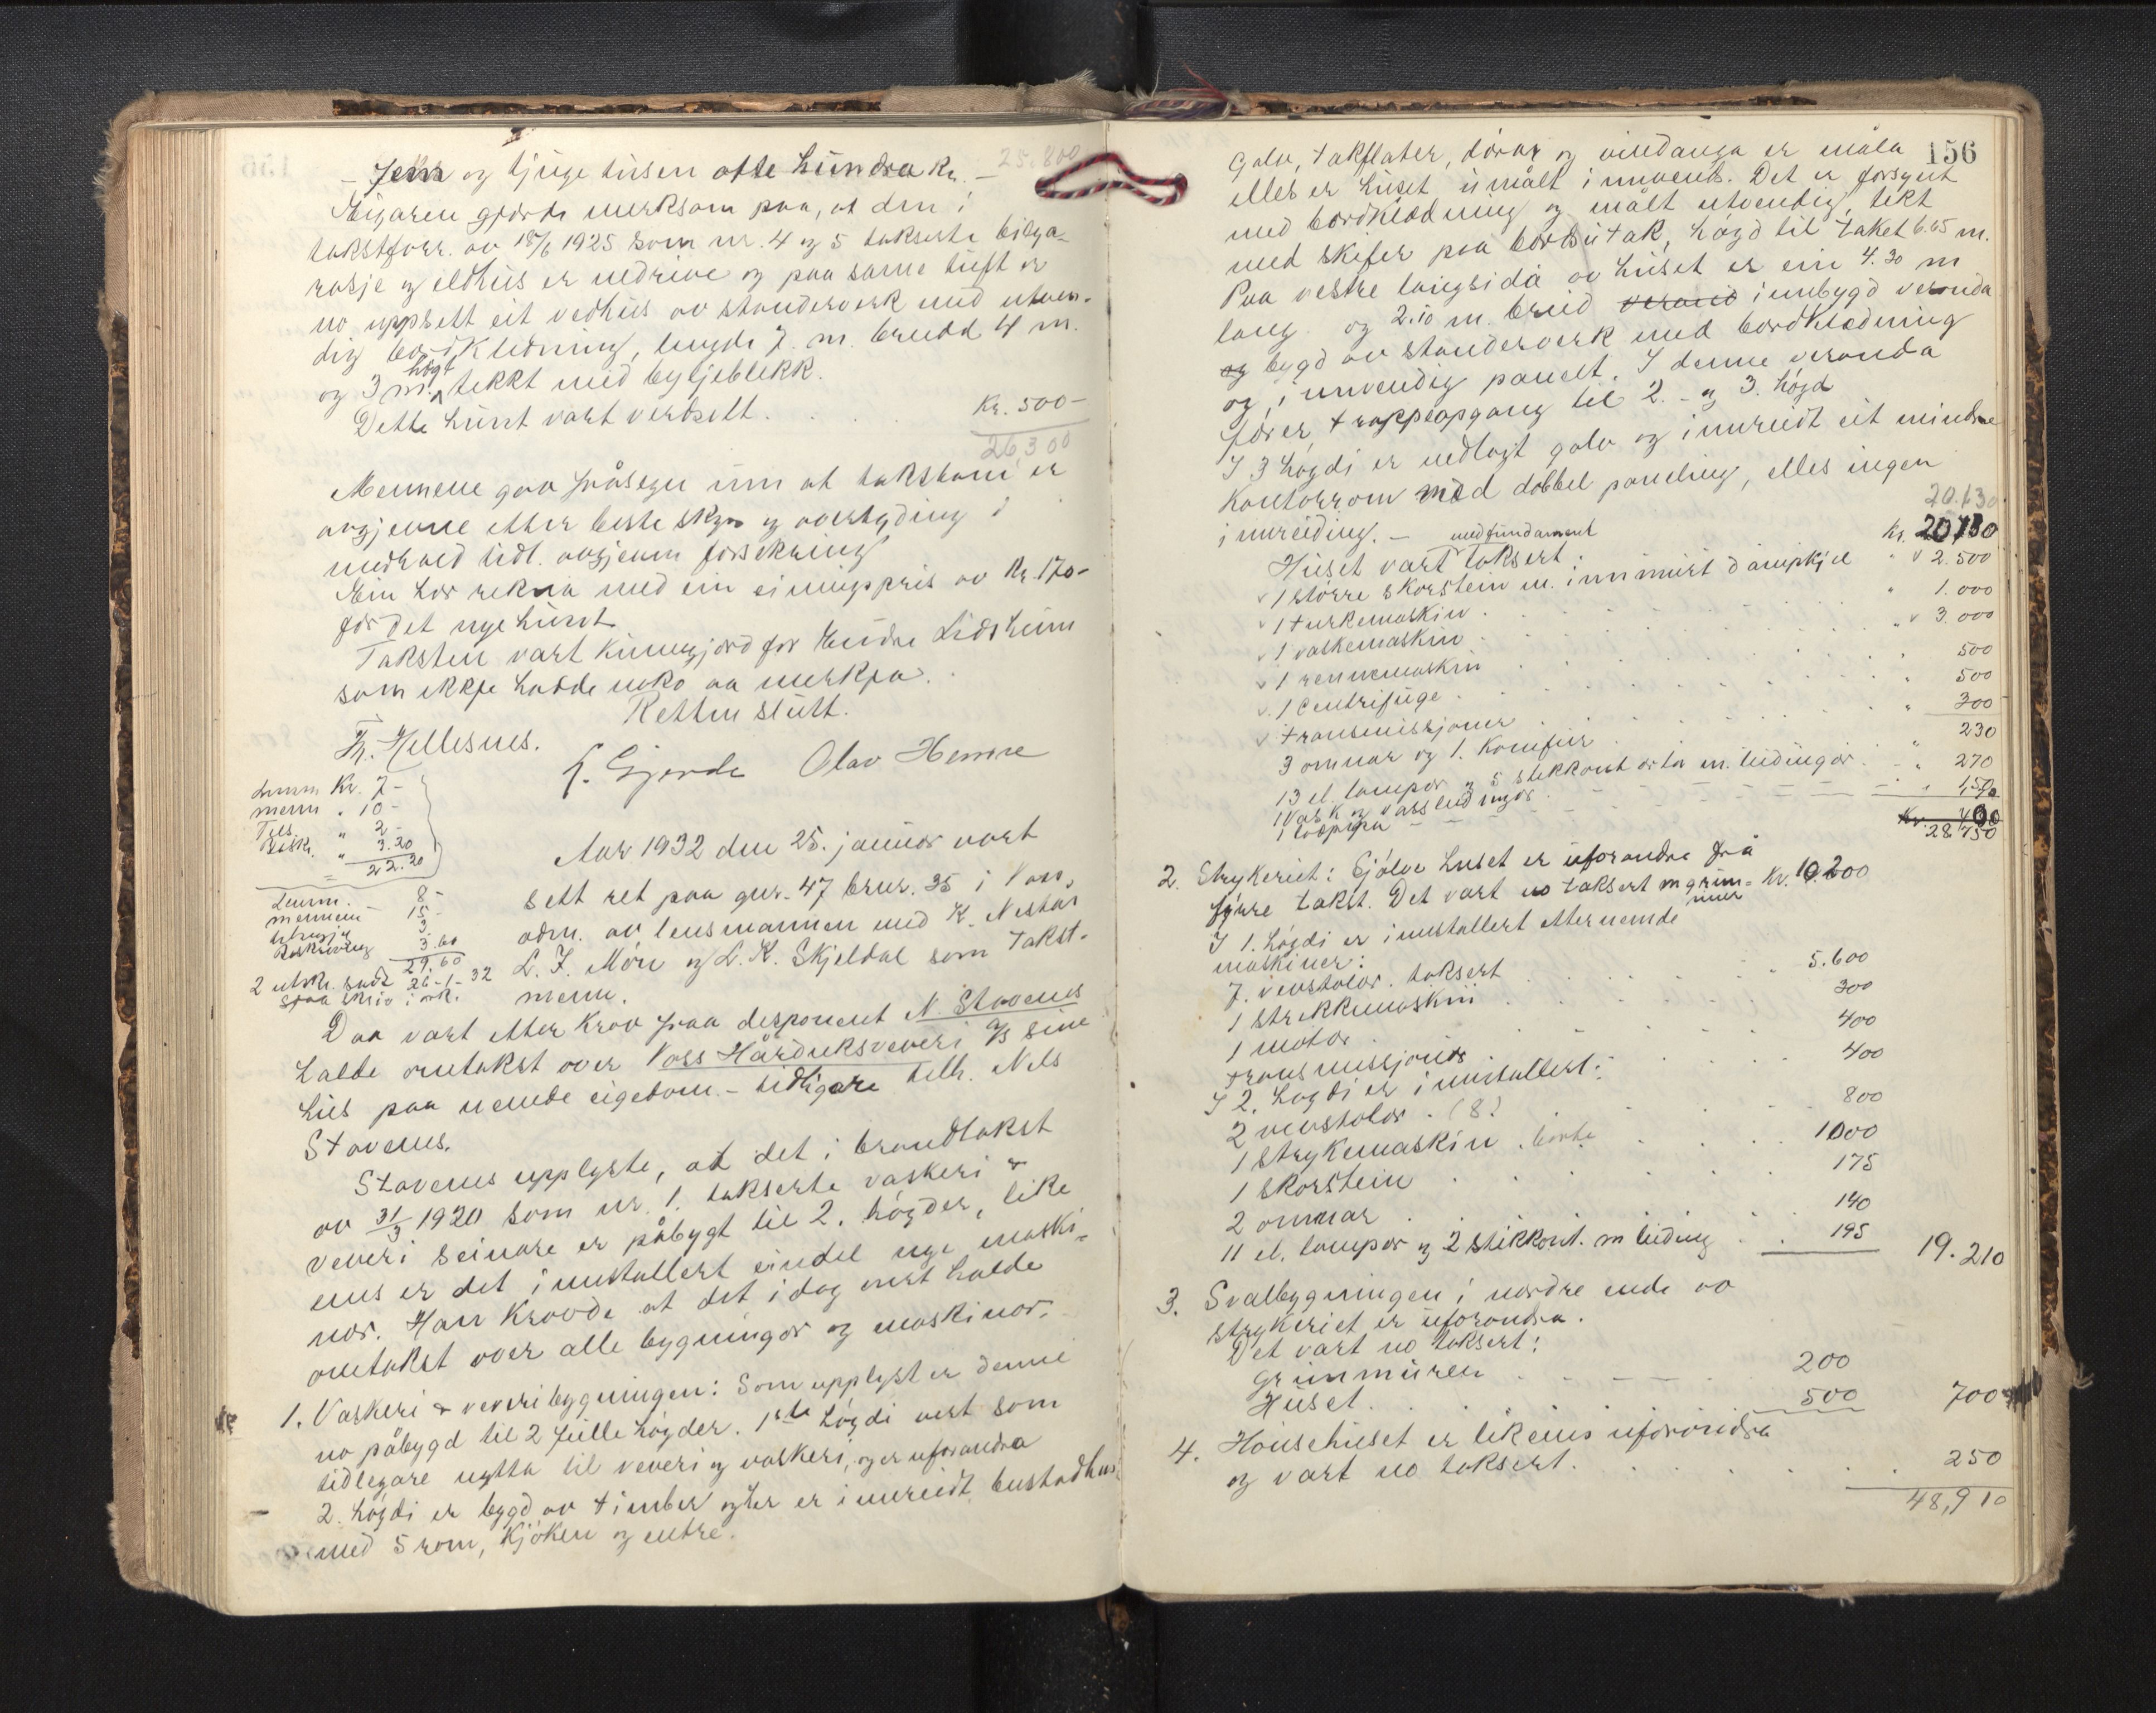 - Fem og tjuge tusen otte hundra kr. - 25.800
Eigaren gjorde merksam paa, at den i
takstforr. av 18/6 1925 som nr. 4 og 5 takserte bilga-
rasje og eldhus er nedrive og paa same tuft er
no uppsett eit vedhus av standerverk med utven-
dig bordkledning, lengde 7. m. breidd 4 m.
og 3 m. høgt tekkt med bylgjeblekk.
Dette huset vart verdsett . . . Kr. 500-
26,300
Mennene gav fråsegn um at taksten er
avgjevne etter beste skyn og overtyding i
medhald tidl. avgjeven forsikring
Ein har rekna med ein einingspris av kr. 170-
for det nye huset
Taksten vart kunngjord for Eindre Lidsheim
som ikkje hadde noko aa merkja.
Retten slutt.
Th. Hellesnes.
K. Gjerde Olav Hemre
Lensm Kr. 7-
menn " 10-
Tils. " 2-
Beskr. " 3.20
= 22.20
Lensm. 8-
mennene - 15-
3
Beskriving 3.60
29.60
2 utskr. sendt 26-1-32
Aar 1932 den 25. januar vart
sett ret paa gnr. 47 brnr. 35 i Voss,
adm. av lensmannen med K. Nestås
L. J. Mön og L. K. Skjeldal som takst-
menn.
Daa vart etter krav fraa disponent N. Stavenes
halde omtakst over Voss Hårduksveveri A/S sine
hus paa nemde eigedom - tidligare tilh. Nels
Stavenes.
Stavenes upplyste, at det i brandtakst
av 31/3 1920 som nr. 1. takserte vaskeri &
veveri seinare er påbygt til 2. høgder, like
eins er det innstallert eindel nye maski-
nor. Han kravde at det i dag vert halde
omtakst over alle bygningar og maskinor.
1. Vaskeri & veveribygningen: Som upplyst er denne
no påbygd til 2 fulle høgder. 1ste høgdi vert som
tidlegare nytta til veveri og vaskeri, og er uforandra
2. høgdi er bygd av timber og her er innreidt bustadhus
med 5 rom, kjøken og entre.
156
Golv, takflater, dørar og vindauga er måla
elles er huset umålt innvend. Det er forsynt
med bordklædning og målt utvendig, tekt
med skifer paa bordsutak, høgd til taket 6.65 m.
Paa vestre langsida av huset er ein 4.30 m
lang og 2.10 m. breid verand innbygd veranda
og bygd av standerverk med bordklædning
og innvendig panelt. I denne veranda
fører trappeopgang til 2. - og 3. høgd
I 3 høgdi er nedlagt golv og innreidt eit mindre
kontorrom med dobbel paneling, elles ingen
innreiding. - 20.130
Huset vart taksert med fundament . Kr. 20,130
v 1 større skorstein m. innmurt dampkjel " v 2.500
v 1 turkemaskin . . . " 1.000
v 1 vaskemaskin . . . " v 3.000
v 1 rennemaskin . . . " 500
v 1 Centrifuge . . . " 500
v transmissjoner . . . " 300
3 omnar og 1. Komfur . . . " 230
13 el. lampor og 5 stikkontakter m. leidingar . . " 270
1 vask og vassleidingor . . . " 150
1 loppipa
28,750
2. Strykeriet: Sjølve huset er uforandra frå
fyrre takst. Det vart no taksert m grun- Kr. 10.200
mur
I 1. høgdi er innstallert etternemde
maskiner:
7. vevstolar . taksert . . . " 5.600
1 strekkmaskin . . . 300
1 motor . . . 400
transmissjoner . . . 400
I 2. høgdi er innstallert:
2 vevstolar . (8? . . . 800
1 strykemaskin . borte . . . 1000
1 skorstein . . . 175
2 omnar . . . 140
11 el. lampor og 2 stikkont. m leiding . . 195 19.210
3. Svalbygningen i nordre ende av
strykeriet er uforandra.
Det vart no taksert:
Grunnmuren . . . 200
Huset . . . 500 700
4. Hønsehuset er likeins uforandra
og vart no taksert . . . 250
48,910